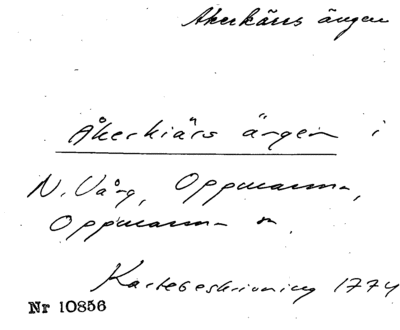 Akerkärrs ängen
Åkerkiärs ängen i
N. Vång, Oppmanna,
Oppmanna sn.
Kartebeskrivning 1774
Nr 10856